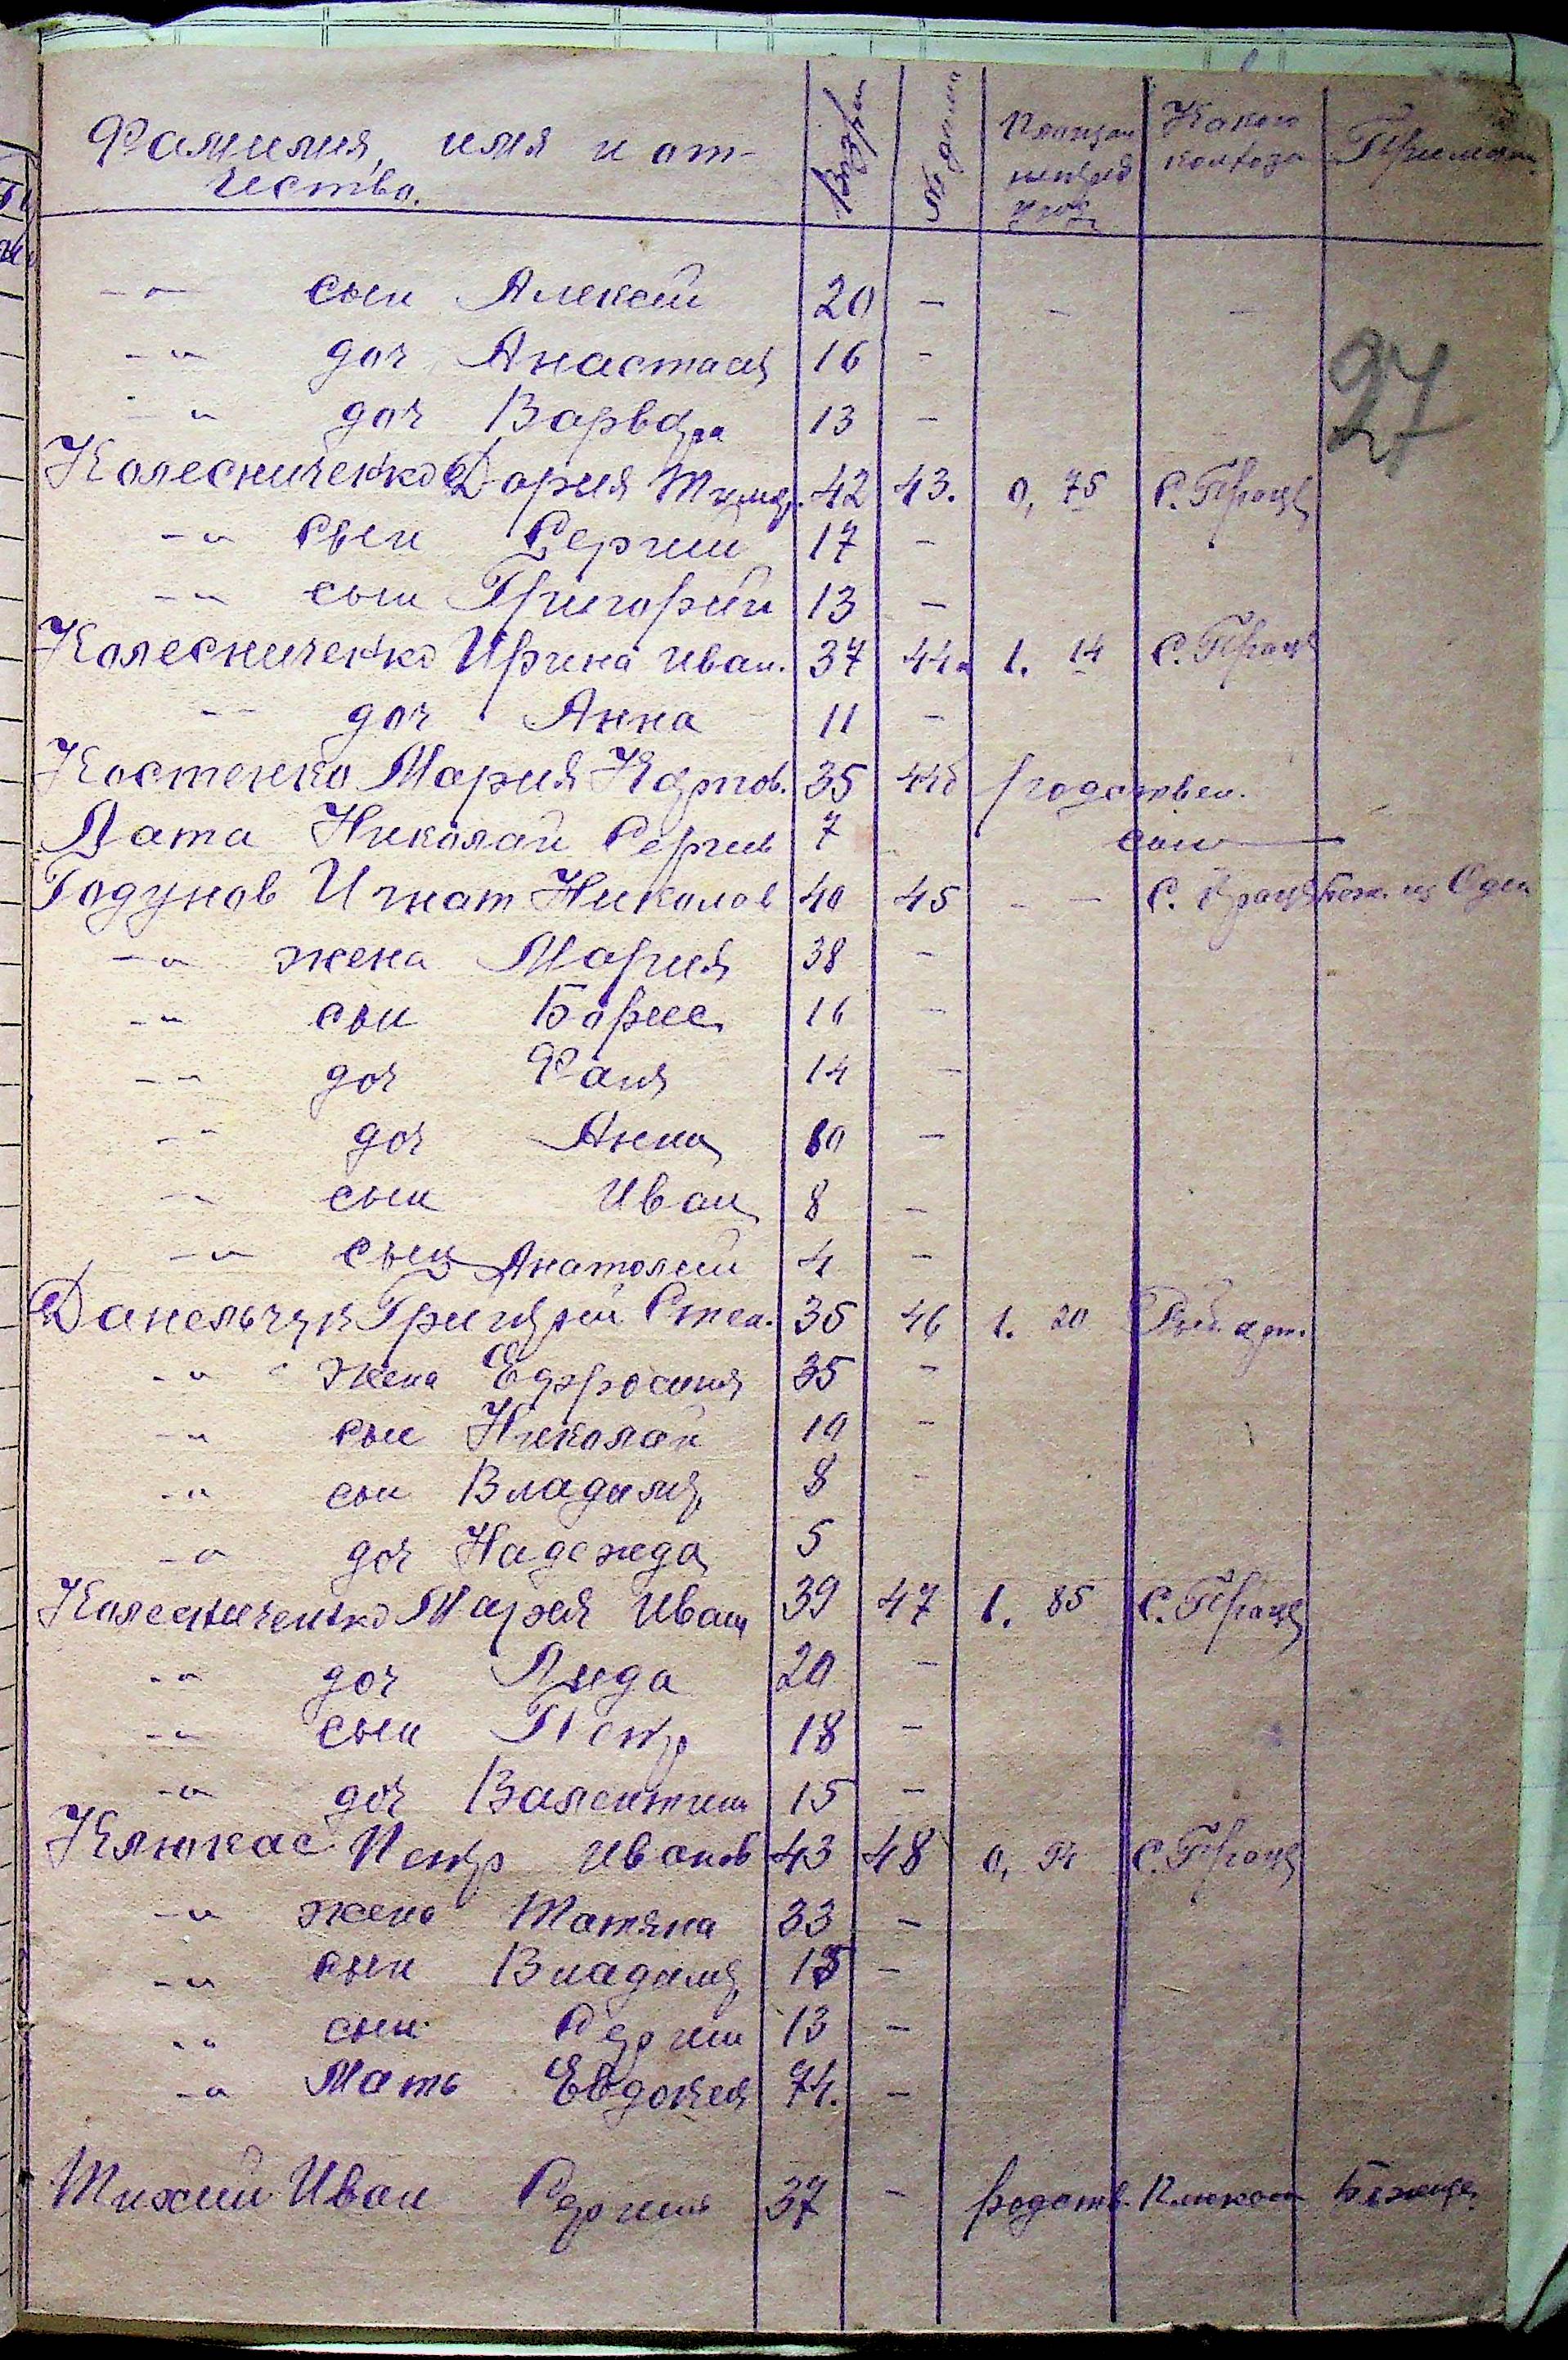 Фамилия, имя и от- Возр № дома Какого колхоза Примеч.
чество.
-"- сын Алексей 20 - - -
-"- доч Анастасия 16 -
27
-"- доч Варвара 13 -
Колесниченко Дария 42 43. 0,75 С. Труд
-"- сын Сергий 17 -
-"- сын Григорий 13 -
Колесниченко Ирина Иван. 37 44а 1.14
-"- доч Анна 11 -
Костенко Мария Карпов. 35 44б родствен.
Лата Николай Сергиев 7 сын
Годунов Игнат Николов 40 45 - - Беж. из Одес
-"- жена Мария 38 -
-"- сын Борис 16 -
-"- доч Фаня 14 -
-"- доч Анна 10 -
-"- сын Иван 8 -
-"- сын Анатолий 4 -
Данельчук Григорий Степ. 35 46 1.20 Рыб. арт.
-"- жена Ефросиния 35 -
-"- сын Николай 10 -
-"- сын Владимир 8 -
-"- доч Надежда 5
Колесниченко Мария Иван 39 47 1.85
-"- доч Лида 20 -
-"- сын Петр 18 -
-"- доч Валентин 15 -
Клюкас Петр Иванов 43 48 0,94
-"- жена Татяна 33 -
-"- сын Владимир 15 -
-"- сын Сергии 13 -
-"- Мать Евдокия 74. -
Тихий Иван Сергиев 37 - родств. Клюкас Беженец